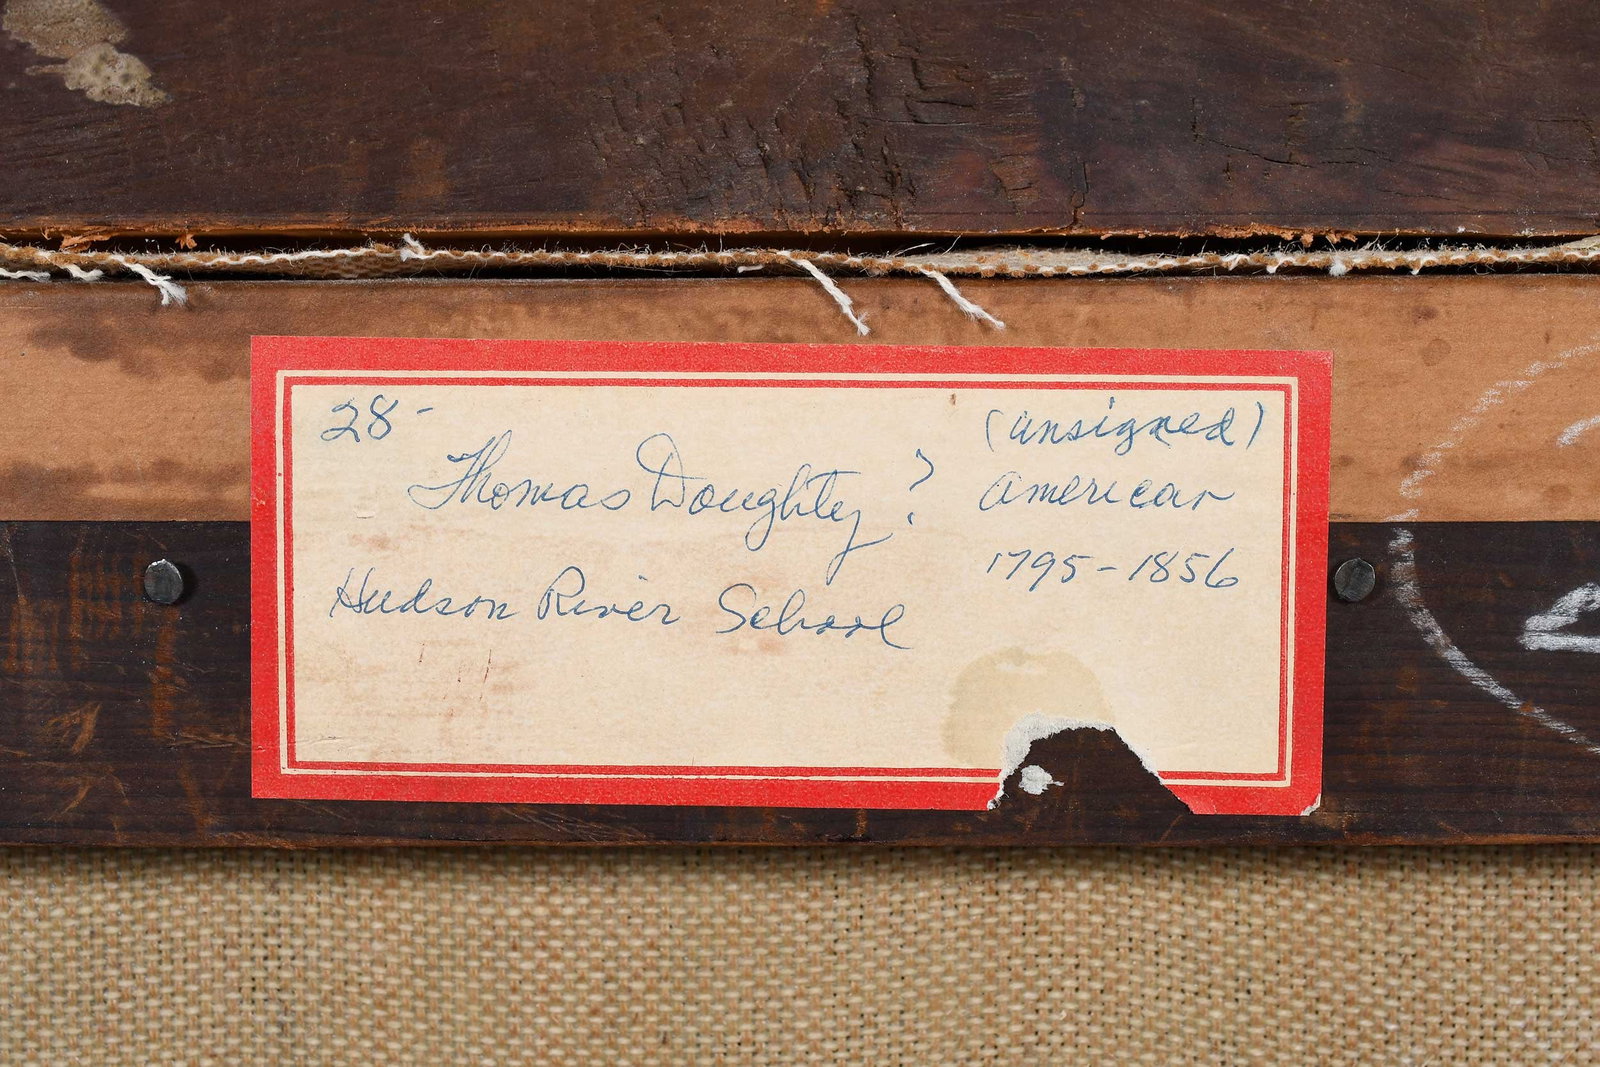 28-
(unsigned)
Thomas Doughty? American
1795-1856
Hudson River School